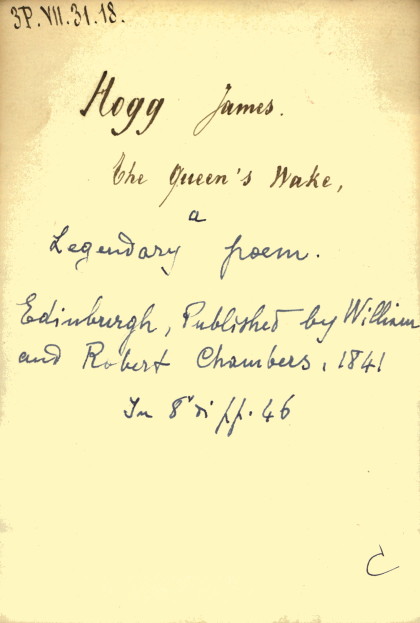 3P.VII.31.18.
Hogg James.
The Queen's Wake,
a
Legendary poem.
Edinburgh, Published by William
and Robert Chambers, 1841
In 8° di pp. 46
C